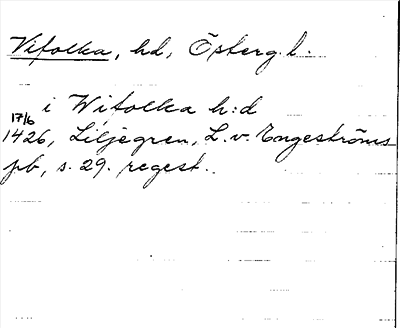 Vifolka, hd, Österg.l.
i Wifolka h:d
17/6
1426, Liljegren, L. v. Engeströms
pb, s. 29. regest.